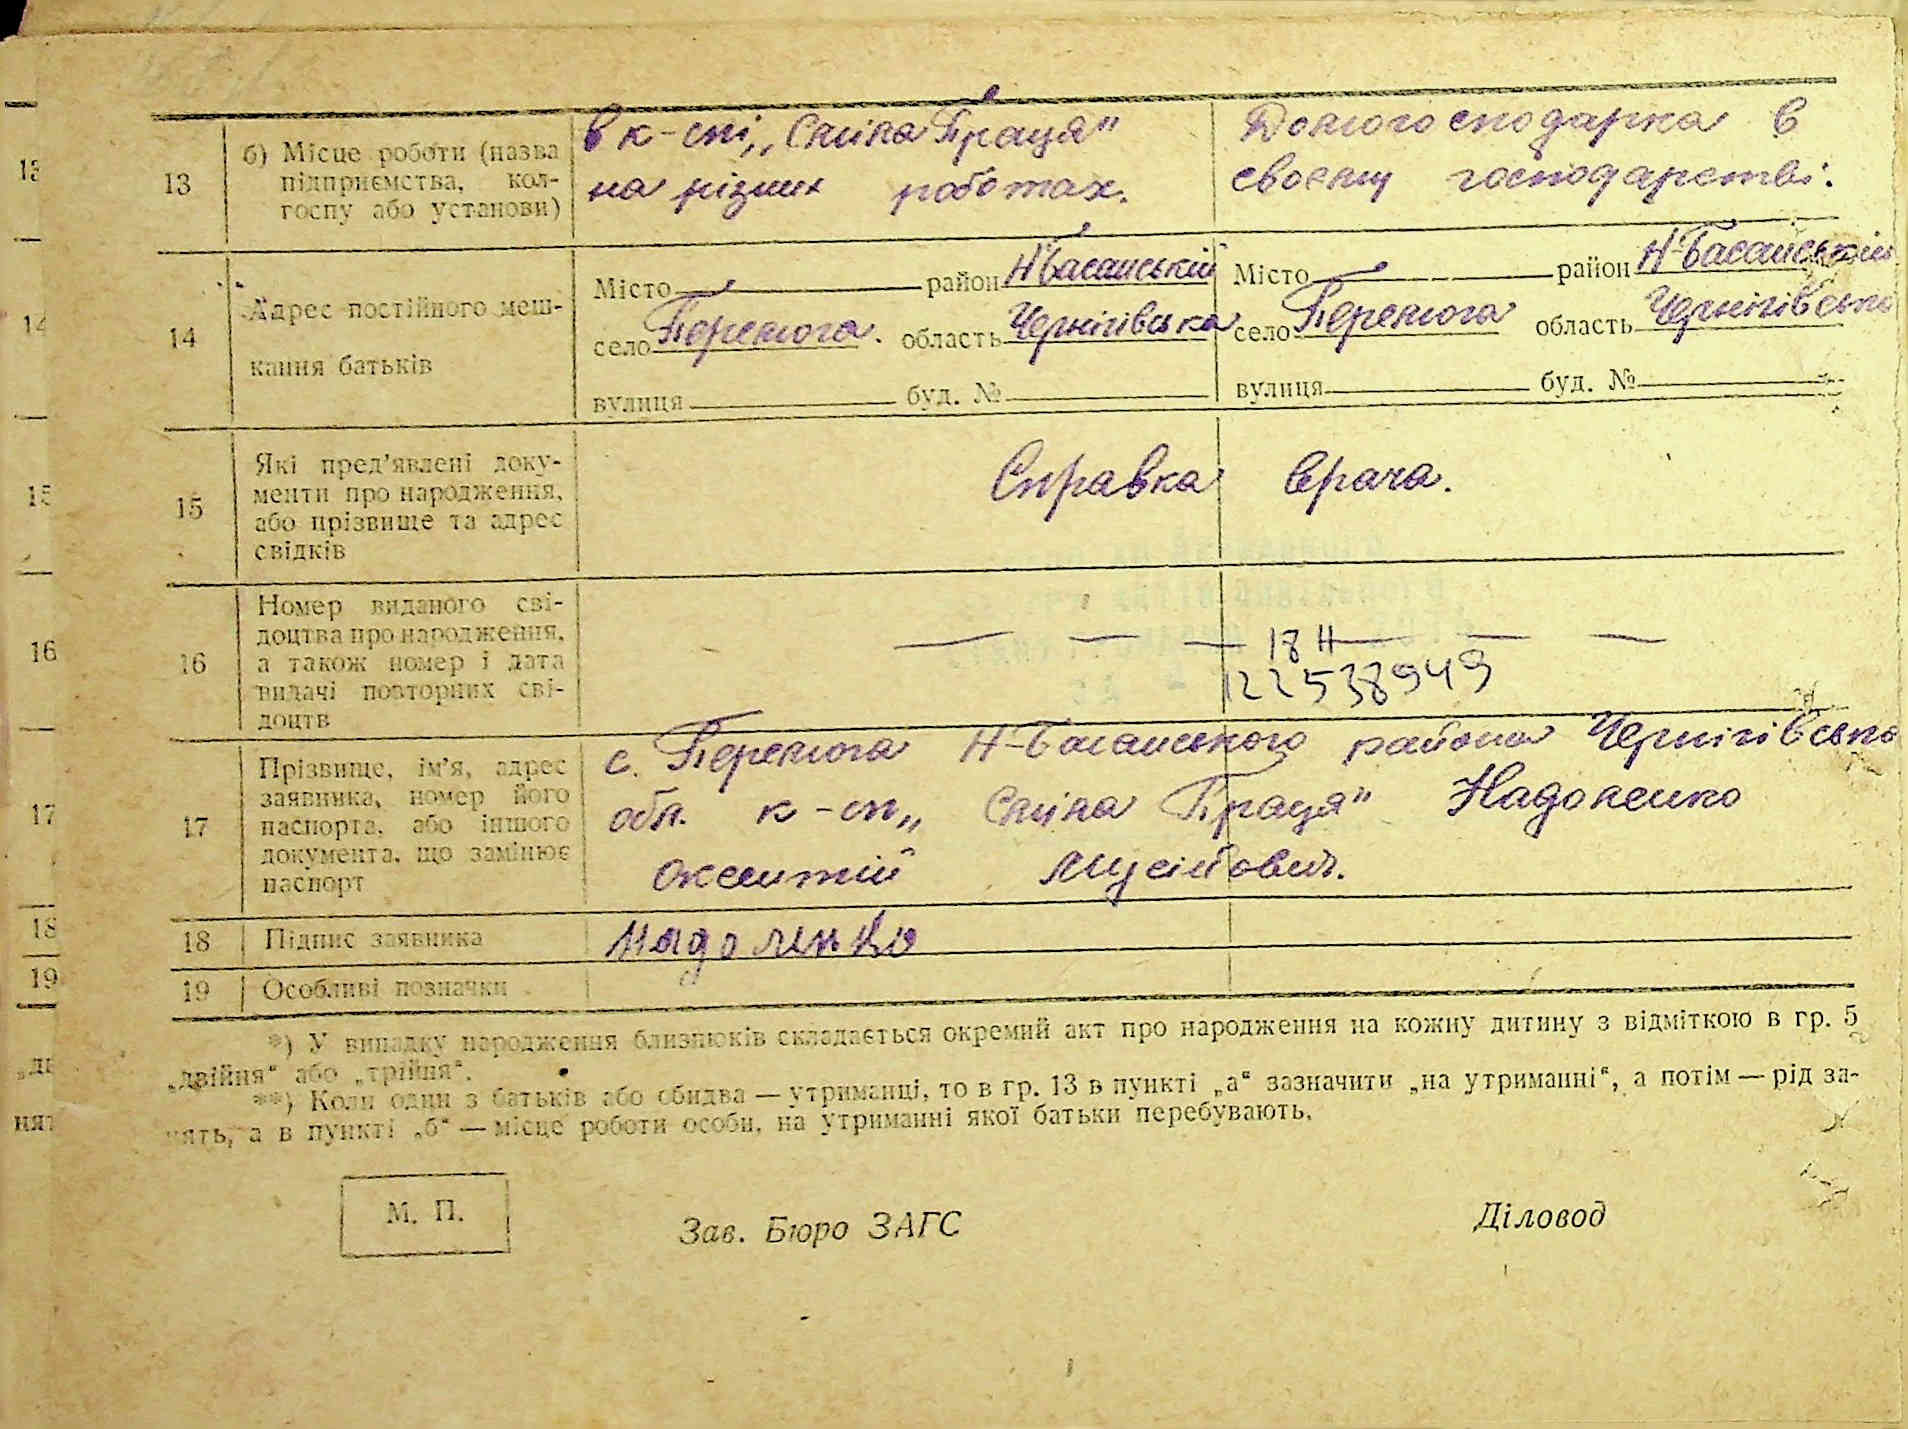 13 б) Місце роботи (назва підприємства, колгоспу або установи)
в к-спі „Спільна Праця"
на різних роботах.
Домогосподарка в
своєму господарстві.
14 Адрес постійного мешкання батьків
Місто — район Н-Басанський
село Перемога. область Чернігівська
вулиця буд. №
Місто — район Н-Басанський
село Перемога область Чернігівська
вулиця буд. №
15 Які пред'явлені документи про народження, або прізвище та адрес свідків
Справка врача.
16 Номер виданого свідоцтва про народження, а також номер і дата видачі повторних свідоцтв
— — — 18 — — —
122538949
17 Прізвище, ім'я, адрес заявника, номер його паспорта, або іншого документа, що замінює паспорт
с. Перемога Н-Басанського района Чернігівсько
обл. к-сп „Спільна Праця" Надоленко
Мусійович.
18 Підпис заявника Надоленко
19 Особливі позначки
*) У випадку народження близнюків складається окремий акт про народження на кожну дитину з відміткою в гр. 5
„двійня" або „трійня".
**) Коли один з батьків або обидва — утриманці, то в гр. 13 в пункті „а" зазначити „на утриманні", а потім — рід за-
нять, а в пункті „б" — місце роботи особи, на утриманні якої батьки перебувають.
М. П.
Зав. Бюро ЗАГС
Діловод